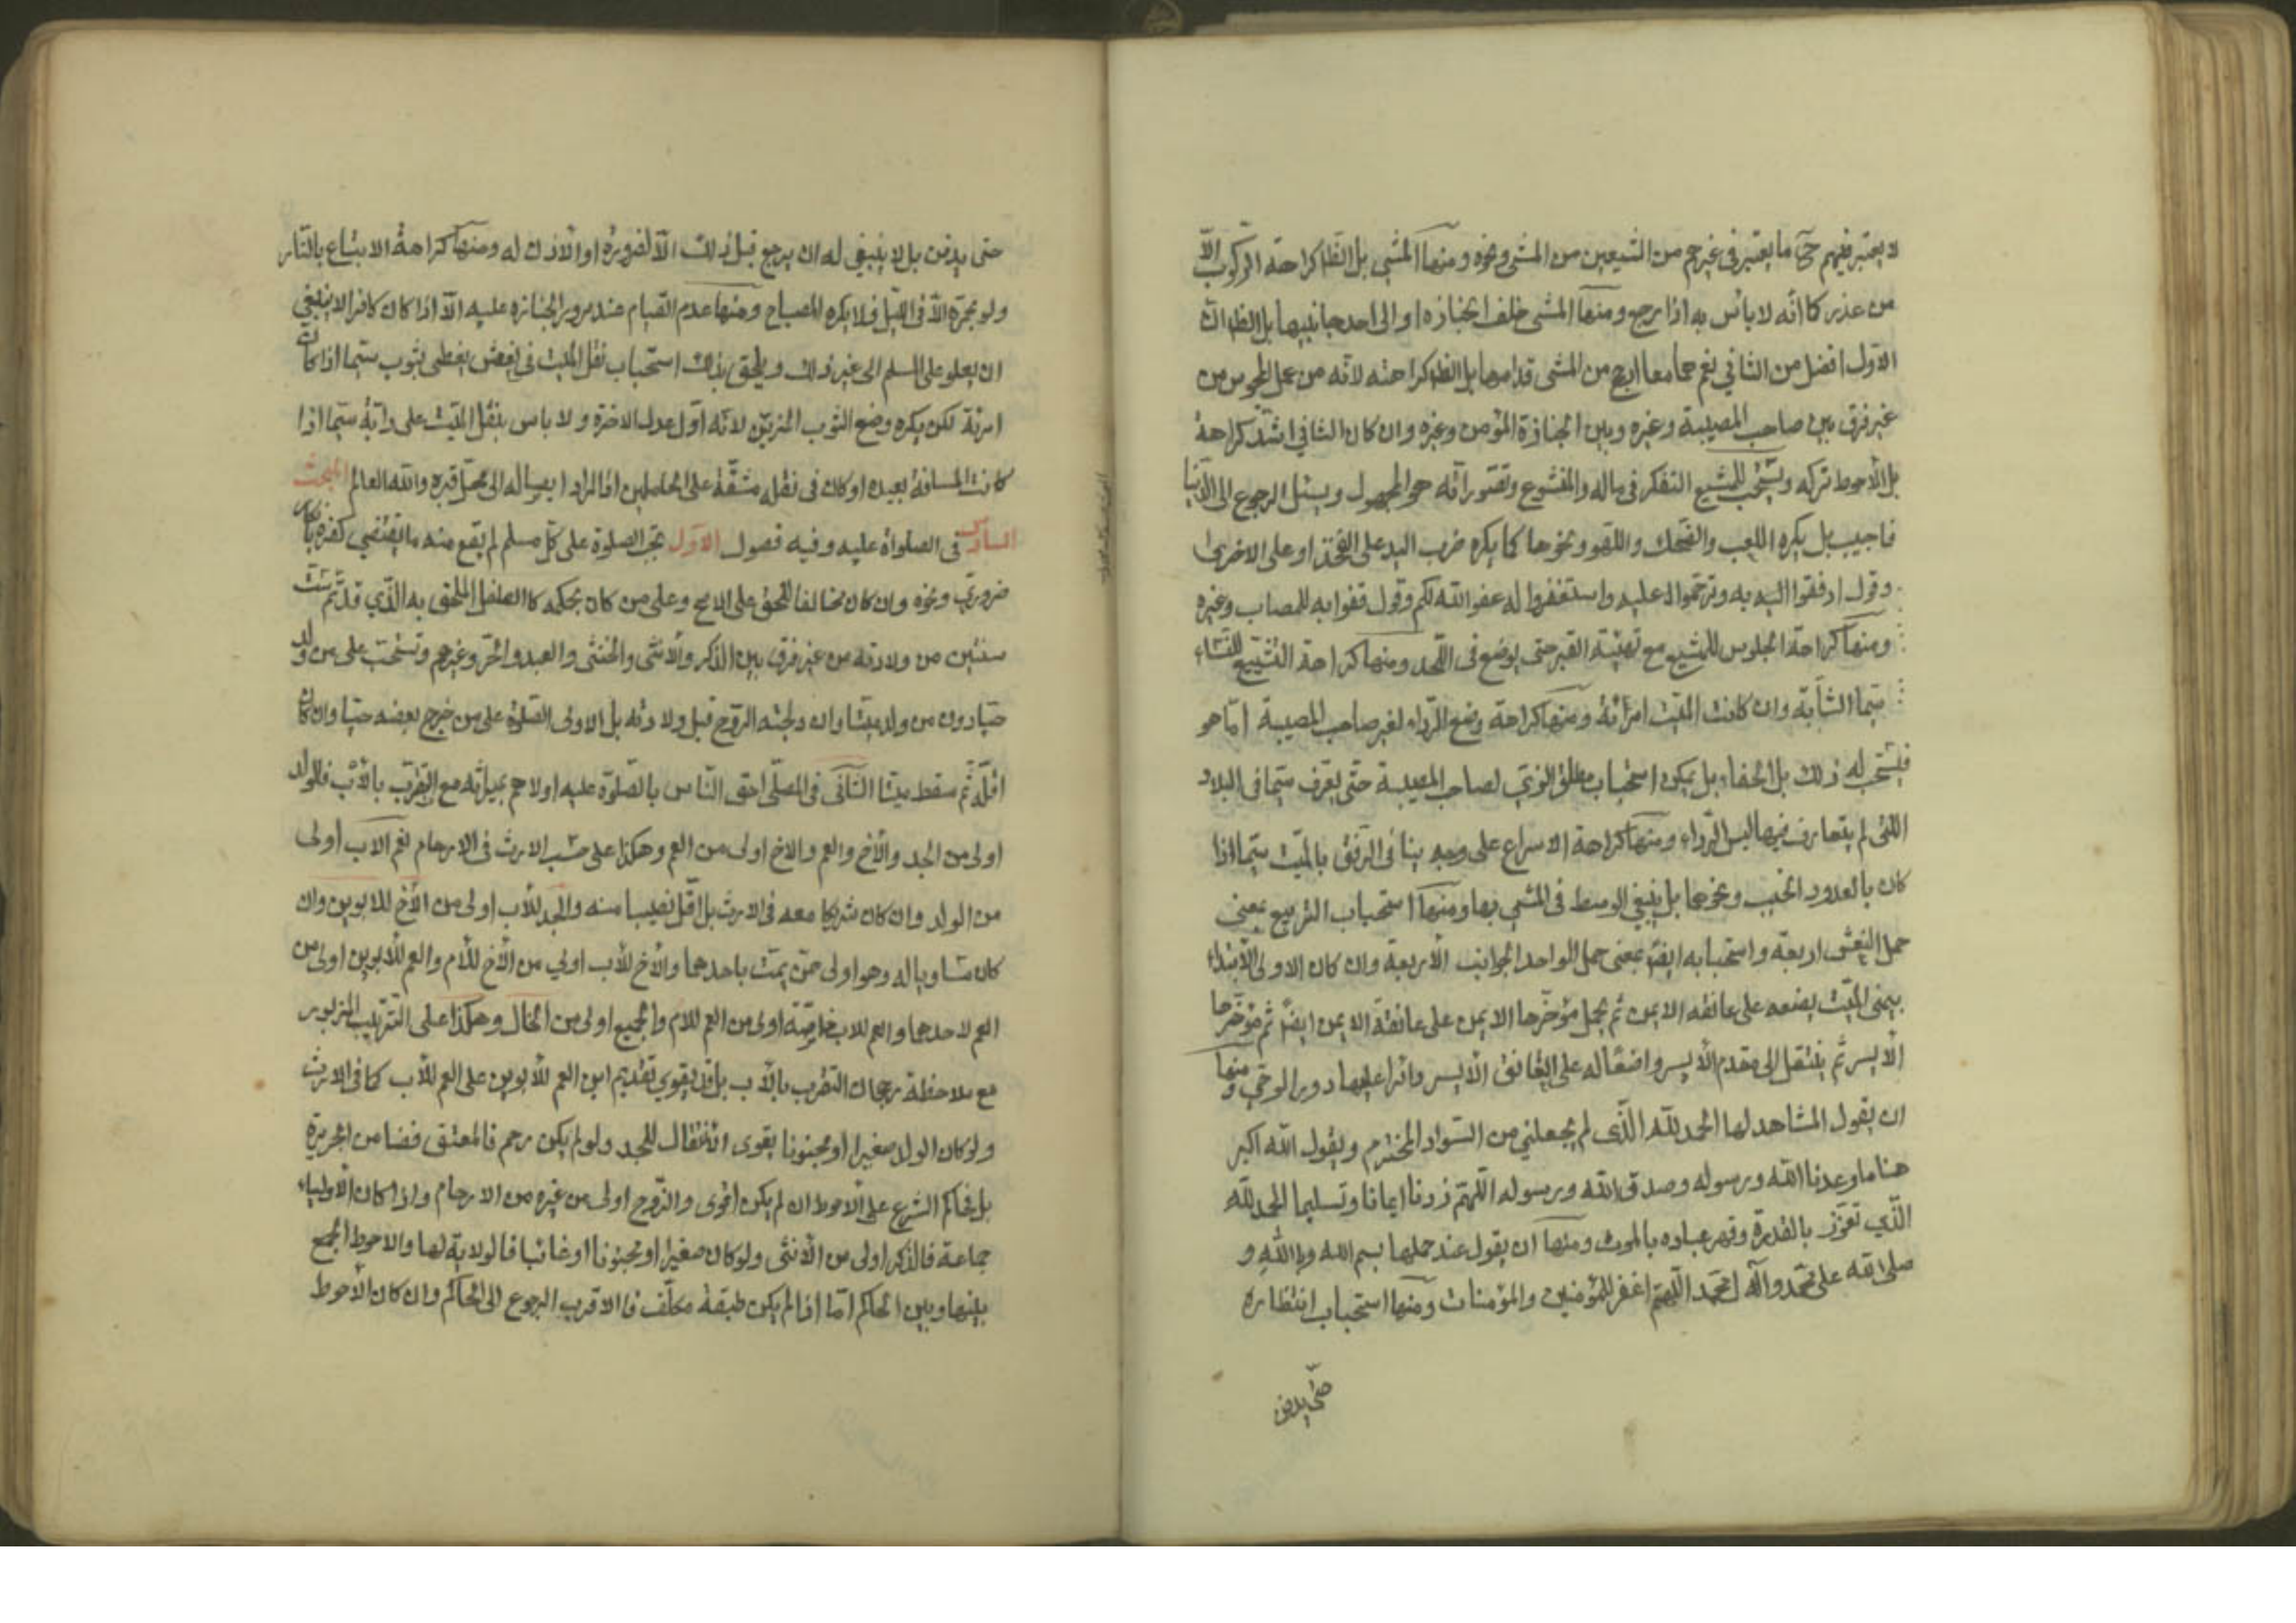 لا يعتبر فيهم ح ما يعتبر فى غيرهم من المشيعين من المشى ونحوه ومنها المشى بل الظ كراهة الركوب الّا
من عذر كما انّه لا باس به اذا رجع ومنها المشى خلف الجنازة او الى احد جانبيها بل الظ ان
الاول افضل من الثاني نعم هما معا ارجح من المشى قدامها بل الظ كراهته لانّه من عمل المجوس من
غير فرق بين صاحب المصيبة وغيره وبين الجنازة المؤمن وغيره وان كان الثاني اشد كراهة
بل الاحوط تركه ويستحب للمشيع التفكر فى ماله والخشوع وتصور انّه هو المحمول ويسئل الرجوع الى الدنيا
فاجيب بل يكره اللعب والضحك واللهو ونحوها كما يكره ضرب اليد على الفخذ او على الاخرى
وقول ارفقوا به وترحموا عليه واستغفروا له عفر الله لكم وقول قفوا به للمصاب وغيره
ومنها كراهة الجلوس للمشيع مع تهيئة القبر حتى يوضع فى اللّحد ومنها كراهة التشييع للنساء
سيّما الشابّة وان كانت الميّت امرأة ومنها كراهة وضع الرّداء لغير صاحب المصيبة امّا هو
فيستحب له ذلك بل الحفاء بل يمكن استحباب مطلق الزي لصاحب المصيبة حتّى يعرف سيّما فى البلاد
اللتى لم يتعارف فيها لبس الرّداء ومنها كراهة الاسراع على وجه ينافى الرّفق بالميّت سيّما اذا
كان بالعدو والخبب ونحوهما بل ينبغي الوسط فى المشى بها ومنها استحباب التربيع بمعنى
حمل النعش اربعة واستحبابه ايضا بمعنى حمل الواحد الجوانب الاربعة وان كان الاولى الابتداء
بيمنى الميّت يضعه على عاتقه الايمن ثم يحمل مؤخرها الايمن على عاتقه الايمن ايضا ثم مؤخرها
الايسر ثم ينتقل الى مقدم الايسر واضعا له على العاتق الايسر دائرا عليها دور الرحى ومنها
ان يقول المشاهد لها الحمد للّه الّذى لم يجعلني من السّواد المخترم ويقول اللّه اكبر
هذا ما وعدنا اللّه ورسوله وصدق اللّه ورسوله اللّهم زدنا ايمانا وتسليما الحمد للّه
الّذي تعزّز بالقدرة وقهر عباده بالموت ومنها ان يقول عند حملها بسم اللّه وباللّه و
صلى اللّه على محمّد وآله محمّد اللّهم اغفر للمؤمنين والمؤمنات ومنها استحباب انتظاره
حتى يدفن
حتى يدفن بل لا ينبغي له ان يرجع قبل ذلك الّا لضرورة او الاذن له ومنها كراهة الاتباع بالنّار
ولو مجمرة الّا فى الليل فلا يكره المصباح ومنها عدم القيام عند مرور الجنازة عليه الّا اذا كان كافرا لا ينبغي
ان يعلو على المسلم الى غير ذلك ويلحق بذلك استحباب نقل الميّت فى نعش يغطى بثوب سيّما اذا كانت
امرئة لكن يكره وضع الثوب المزيّن لانّه اوّل عدل الاخرة ولا باس بنقل الميّت على دابة سيّما اذا
كانت المسافة بعيدة او كان فى نقله مشقّة على الحاملين اذا اراد ايصاله الى محلّ قبره واللّه العالم المبحث
السادس فى الصلواة عليه وفيه فصول الاول تجب الصلوة على كلّ مسلم لم يقع منه ما يقتضي كفره بانكار
ضروري ونحوه وان كان مخالفا للحق على الاصح وعلى من كان بحكمه كالطفل الملحق به الّذي قد تمّ ستّ
سنين من ولادته من غير فرق بين الذكر والانثى والخنثى والعبد والحرّ وغيرهم وتستحب على من ولد
حيّا دون من ولد ميّتا وان ولجته الرّوح قبل ولادته بل الاولى الصّلوة على من خرج بعضه حيّا وان كان
اقلّه ثم سقط ميتا الثانى فى المصلّي احق النّاس بالصّلوة عليه اولاهم بميراثه مع التقرب بالاب فالولد
اولى من الجد والأخ والعم والاخ اولى من العم وهكذا على حسب الارث فى الارحام نعم الأب اولى
من الولد وان كان شريكا معه فى الارث بل اقلّ نصيبا منه والجد للأب اولى من الأخ للابوين وان
كان مساويا له وهو اولى ممّن يمتّ باحدهما والأخ للأب اولي من الأخ للأم والعم للابوين اولى من
العم لاحدهما والعم للاب خاصّة اولى من العم للام والجميع اولى من الخال وهكذا على الترتيب المزبور
مع ملاحظة رجحان التقرب بالأب بل قد يقوى تقديم ابن العم للأبوين على العم للأب كما فى الارث
ولو كان الولد صغيرا او مجنونا يقوى انتقال للجد ولو لم يكن رحم فالمعتق فضامن الجريرة
بل فحاكم الشرع على الاحوط ان لم يكن اقوى والزّوج اولى من غيره من الارحام واذا كان الأولياء
جماعة فالذكر اولى من الأنثى ولو كان صغيرا او مجنونا او غائبا فالولاية لها والاحوط الجمع
بينها وبين الحاكم امّا اذا لم يكن طبقة مكلّف فالاقرب الرجوع الى الحاكم وان كان الأحوط